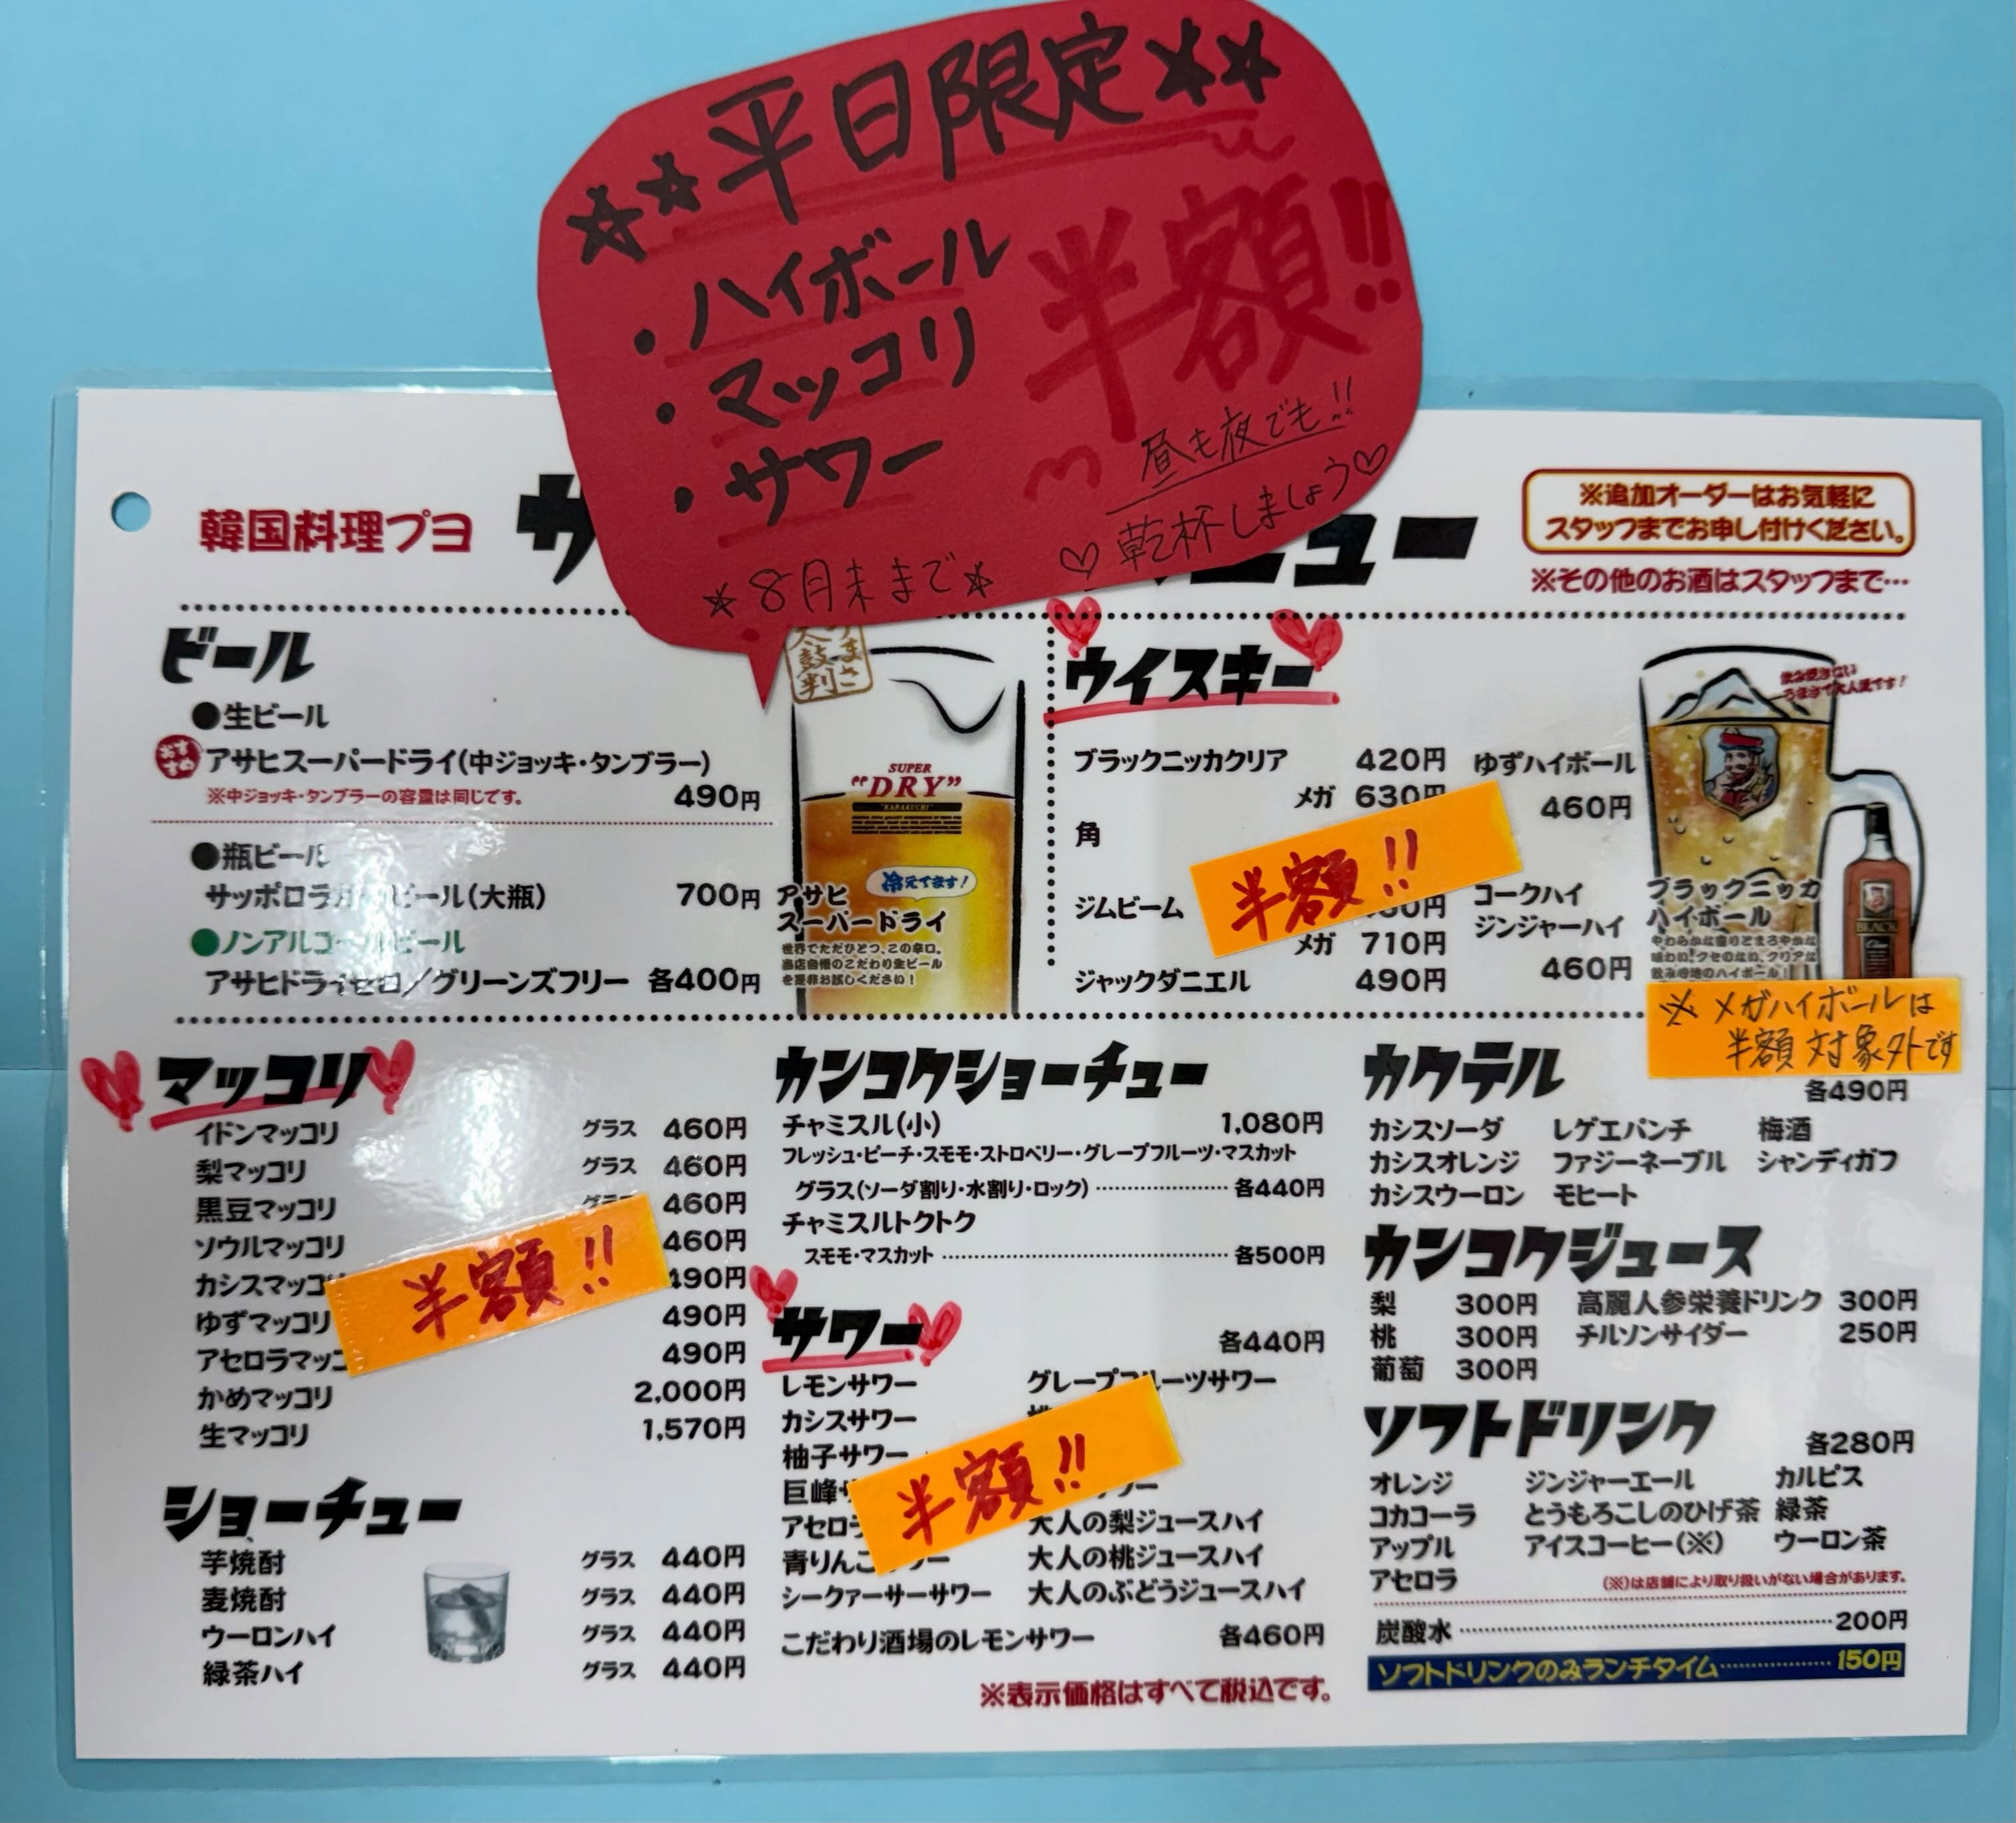 平日限定
・ハイボール
・マッコリ
・サワー
半額!!
昼も夜でも!!
乾杯しましょう
8月末まで
韓国料理プヨ
サ
ニュー
※追加オーダーはお気軽に
スタッフまでお申し付けください。
※その他のお酒はスタッフまで…
ビール
●生ビール
おすすめ
アサヒスーパードライ(中ジョッキ・タンブラー)
※中ジョッキ・タンブラーの容量は同じです。 490円
●瓶ビール
サッポロラガービール(大瓶) 700円
●ノンアルコールビール
アサヒドライゼロ/グリーンズフリー 各400円
うまさ
太鼓判
SUPER
"DRY"
"KARAKUCHI"
冷えてます!
アサヒ
スーパードライ
世界でただひとつ、この辛口。
当店自慢のこだわり生ビール
を是非お試しください!
ウイスキー
ブラックニッカクリア 420円
メガ 630円
角
ジムビーム
メガ 710円
ジャックダニエル 490円
半額!!
ゆずハイボール
460円
コークハイ
ジンジャーハイ
460円
ブラックニッカ
ハイボール
やわらかな香りとまろやかな
味わい!クセのない、クリアな
飲み心地のハイボール!
BLACK
※メガハイボールは
半額対象外です
マッコリ
イドンマッコリ グラス 460円
梨マッコリ グラス 460円
黒豆マッコリ グラス 460円
ソウルマッコリ 460円
カシスマッコリ 490円
ゆずマッコリ 490円
アセロラマッコ 490円
かめマッコリ 2,000円
生マッコリ 1,570円
半額!!
ショーチュー
芋焼酎 グラス 440円
麦焼酎 グラス 440円
ウーロンハイ グラス 440円
緑茶ハイ グラス 440円
カンコクショーチュー
チャミスル(小) 1,080円
フレッシュ・ピーチ・スモモ・ストロベリー・グレープフルーツ・マスカット
グラス(ソーダ割り・水割り・ロック) 各440円
チャミスルトクトク
スモモ・マスカット 各500円
サワー
各440円
レモンサワー グレープフルーツサワー
カシスサワー
柚子サワー
巨峰サ
アセロラ 大人の梨ジュースハイ
青りんごサワー 大人の桃ジュースハイ
シークァーサーサワー 大人のぶどうジュースハイ
こだわり酒場のレモンサワー 各460円
半額!!
※表示価格はすべて税込です。
カクテル
各490円
カシスソーダ レゲエパンチ 梅酒
カシスオレンジ ファジーネーブル シャンディガフ
カシスウーロン モヒート
カンコクジュース
梨 300円 高麗人参栄養ドリンク 300円
桃 300円 チルソンサイダー 250円
葡萄 300円
ソフトドリンク
各280円
オレンジ ジンジャーエール カルピス
コカコーラ とうもろこしのひげ茶 緑茶
アップル アイスコーヒー(※) ウーロン茶
アセロラ
(※)は店舗により取り扱いがない場合があります。
炭酸水 200円
ソフトドリンクのみランチタイム 150円